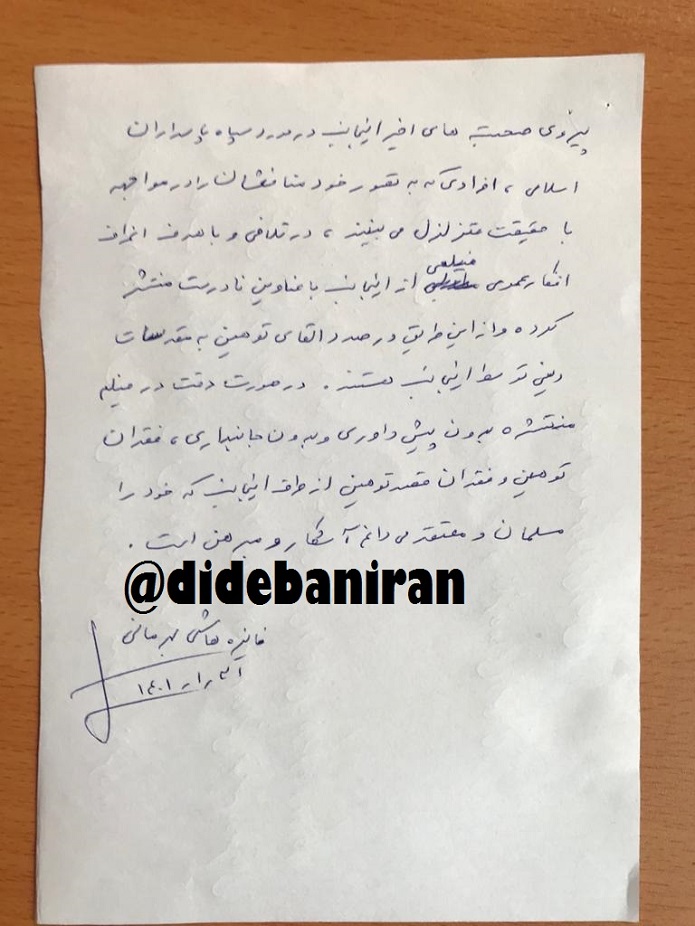 پیروی صحبت های اخیر اینجانب در مورد سپاه پاسداران
اسلامی ، افرادی که به تصور خود منافعشان را در مواجهه
با حقیقت متزلزل می بینند ، در تلافی و با هدف انحراف
افکار عمومی فیلمی از اینجانب با عناوین نادرست منتشر
کرده و از این طریق در صدد القای توهین به مقدسات
دینی توسط اینجانب هستند . در صورت دقت در فیلم
منتشره بدون پیش داوری و بدون جانبداری ، فقدان
توهین و فقدان قصد توهین از طرف اینجانب که خود را
مسلمان و معتقد می دانم آشکار و مبرهن است .
@didebaniran
فائزه هاشمی بهرمانی
۱۴۰۱